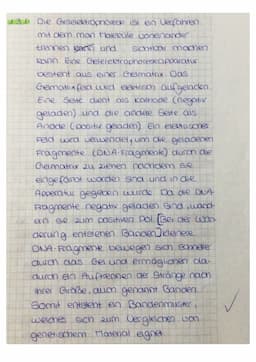 Die Gelelektrophorese ist ein Verfahren
mit dem man Moleküle voneinander
trennen kann und sichtbar machen
kann. Eine Gelelektrophoreseapparatur
besteht aus einer Gelmatrix. Das
Gelmatrixfeld wird elektrisch aufgeladen.
Eine Seite dient als Kathode (negativ
geladen) und die andere Seite als
Anode (positiv geladen). Ein elektrisches
Feld wird verwendet, um die geladenen
Fragmente (DNA-Fragmente) durch die
Gelmatrix zu ziehen nachdem sie
eingefärbt worden sind und in die
Apparatur gegeben wurde. Da die DNA-
Fragmente negativ geladen sind, wand-
ern sie zum positiven Pol. [Bei der Wan-
derung entstehen Banden] kleinere
DNA-Fragmente bewegen sich schneller
durch das Gel und ermöglichen da-
durch ein Auftrennen der Stränge nach
ihrer Größe, auch genannt Banden.
Somit entsteht ein Bandenmuster,
welches sich zum Vergleichen von
genetischem Material eignet.